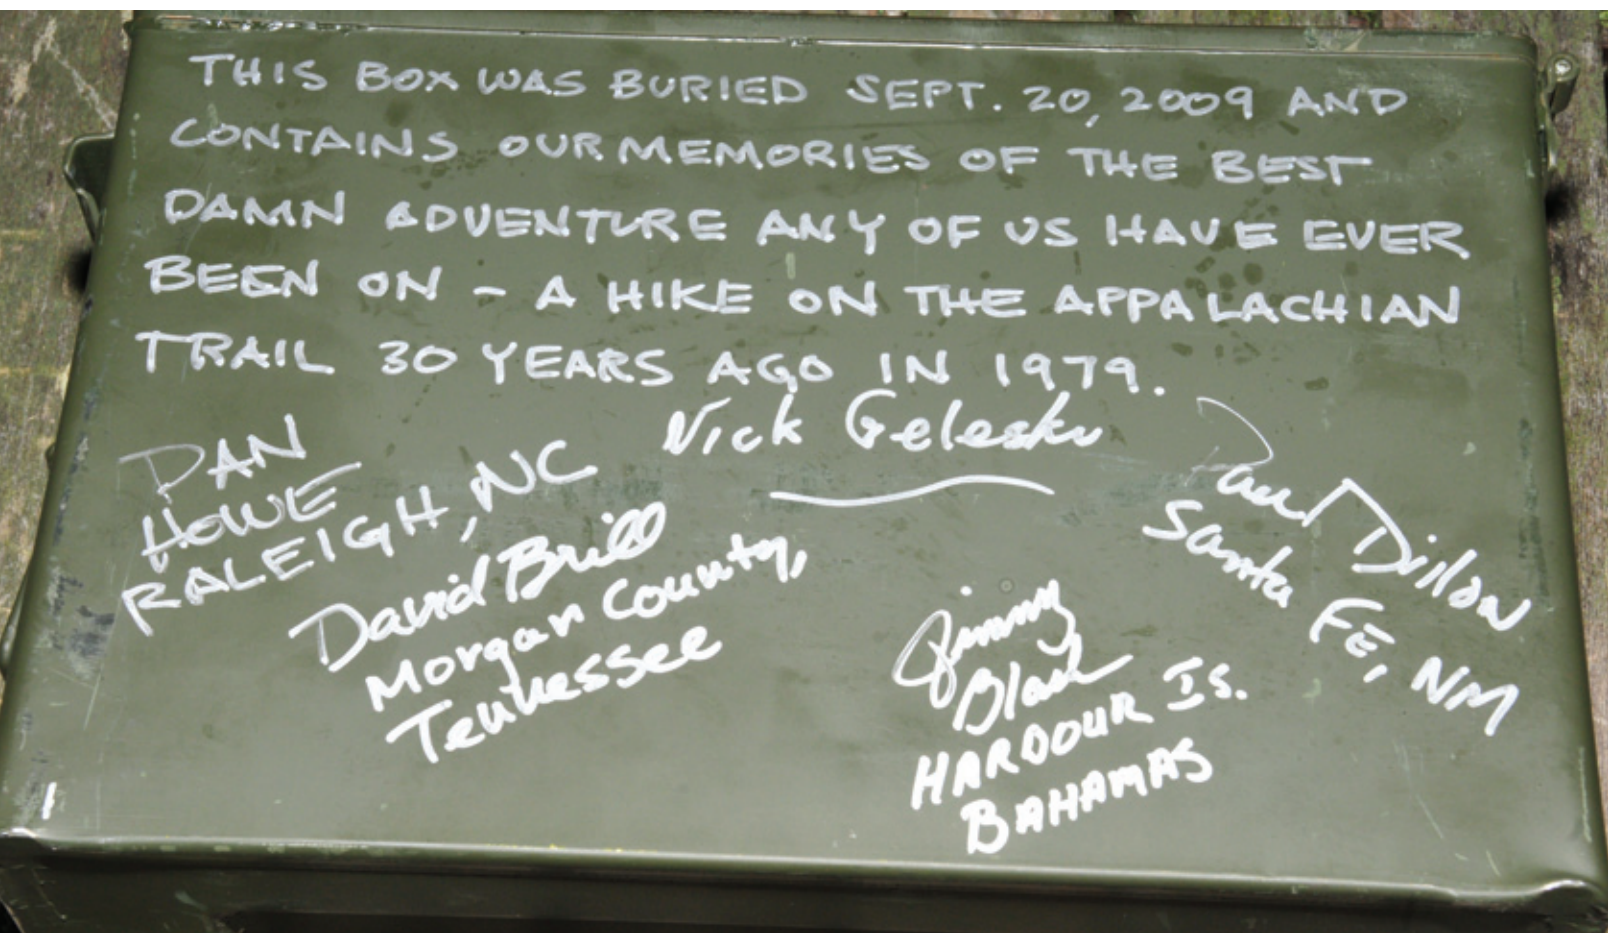 THIS BOX WAS BURIED SEPT. 20, 2009 AND
CONTAINS OUR MEMORIES OF THE BEST
DAMN ADVENTURE ANY OF US HAVE EVER
BEEN ON - A HIKE ON THE APPALACHIAN
TRAIL 30 YEARS AGO IN 1979.
DAN
HOWE
RALEIGH, NC
Nick Gelesko
Paul Dillon
Santa FE, NM
David Brill
Morgan County,
Tennessee
Jimmy
HARBOUR IS.
BAHAMAS